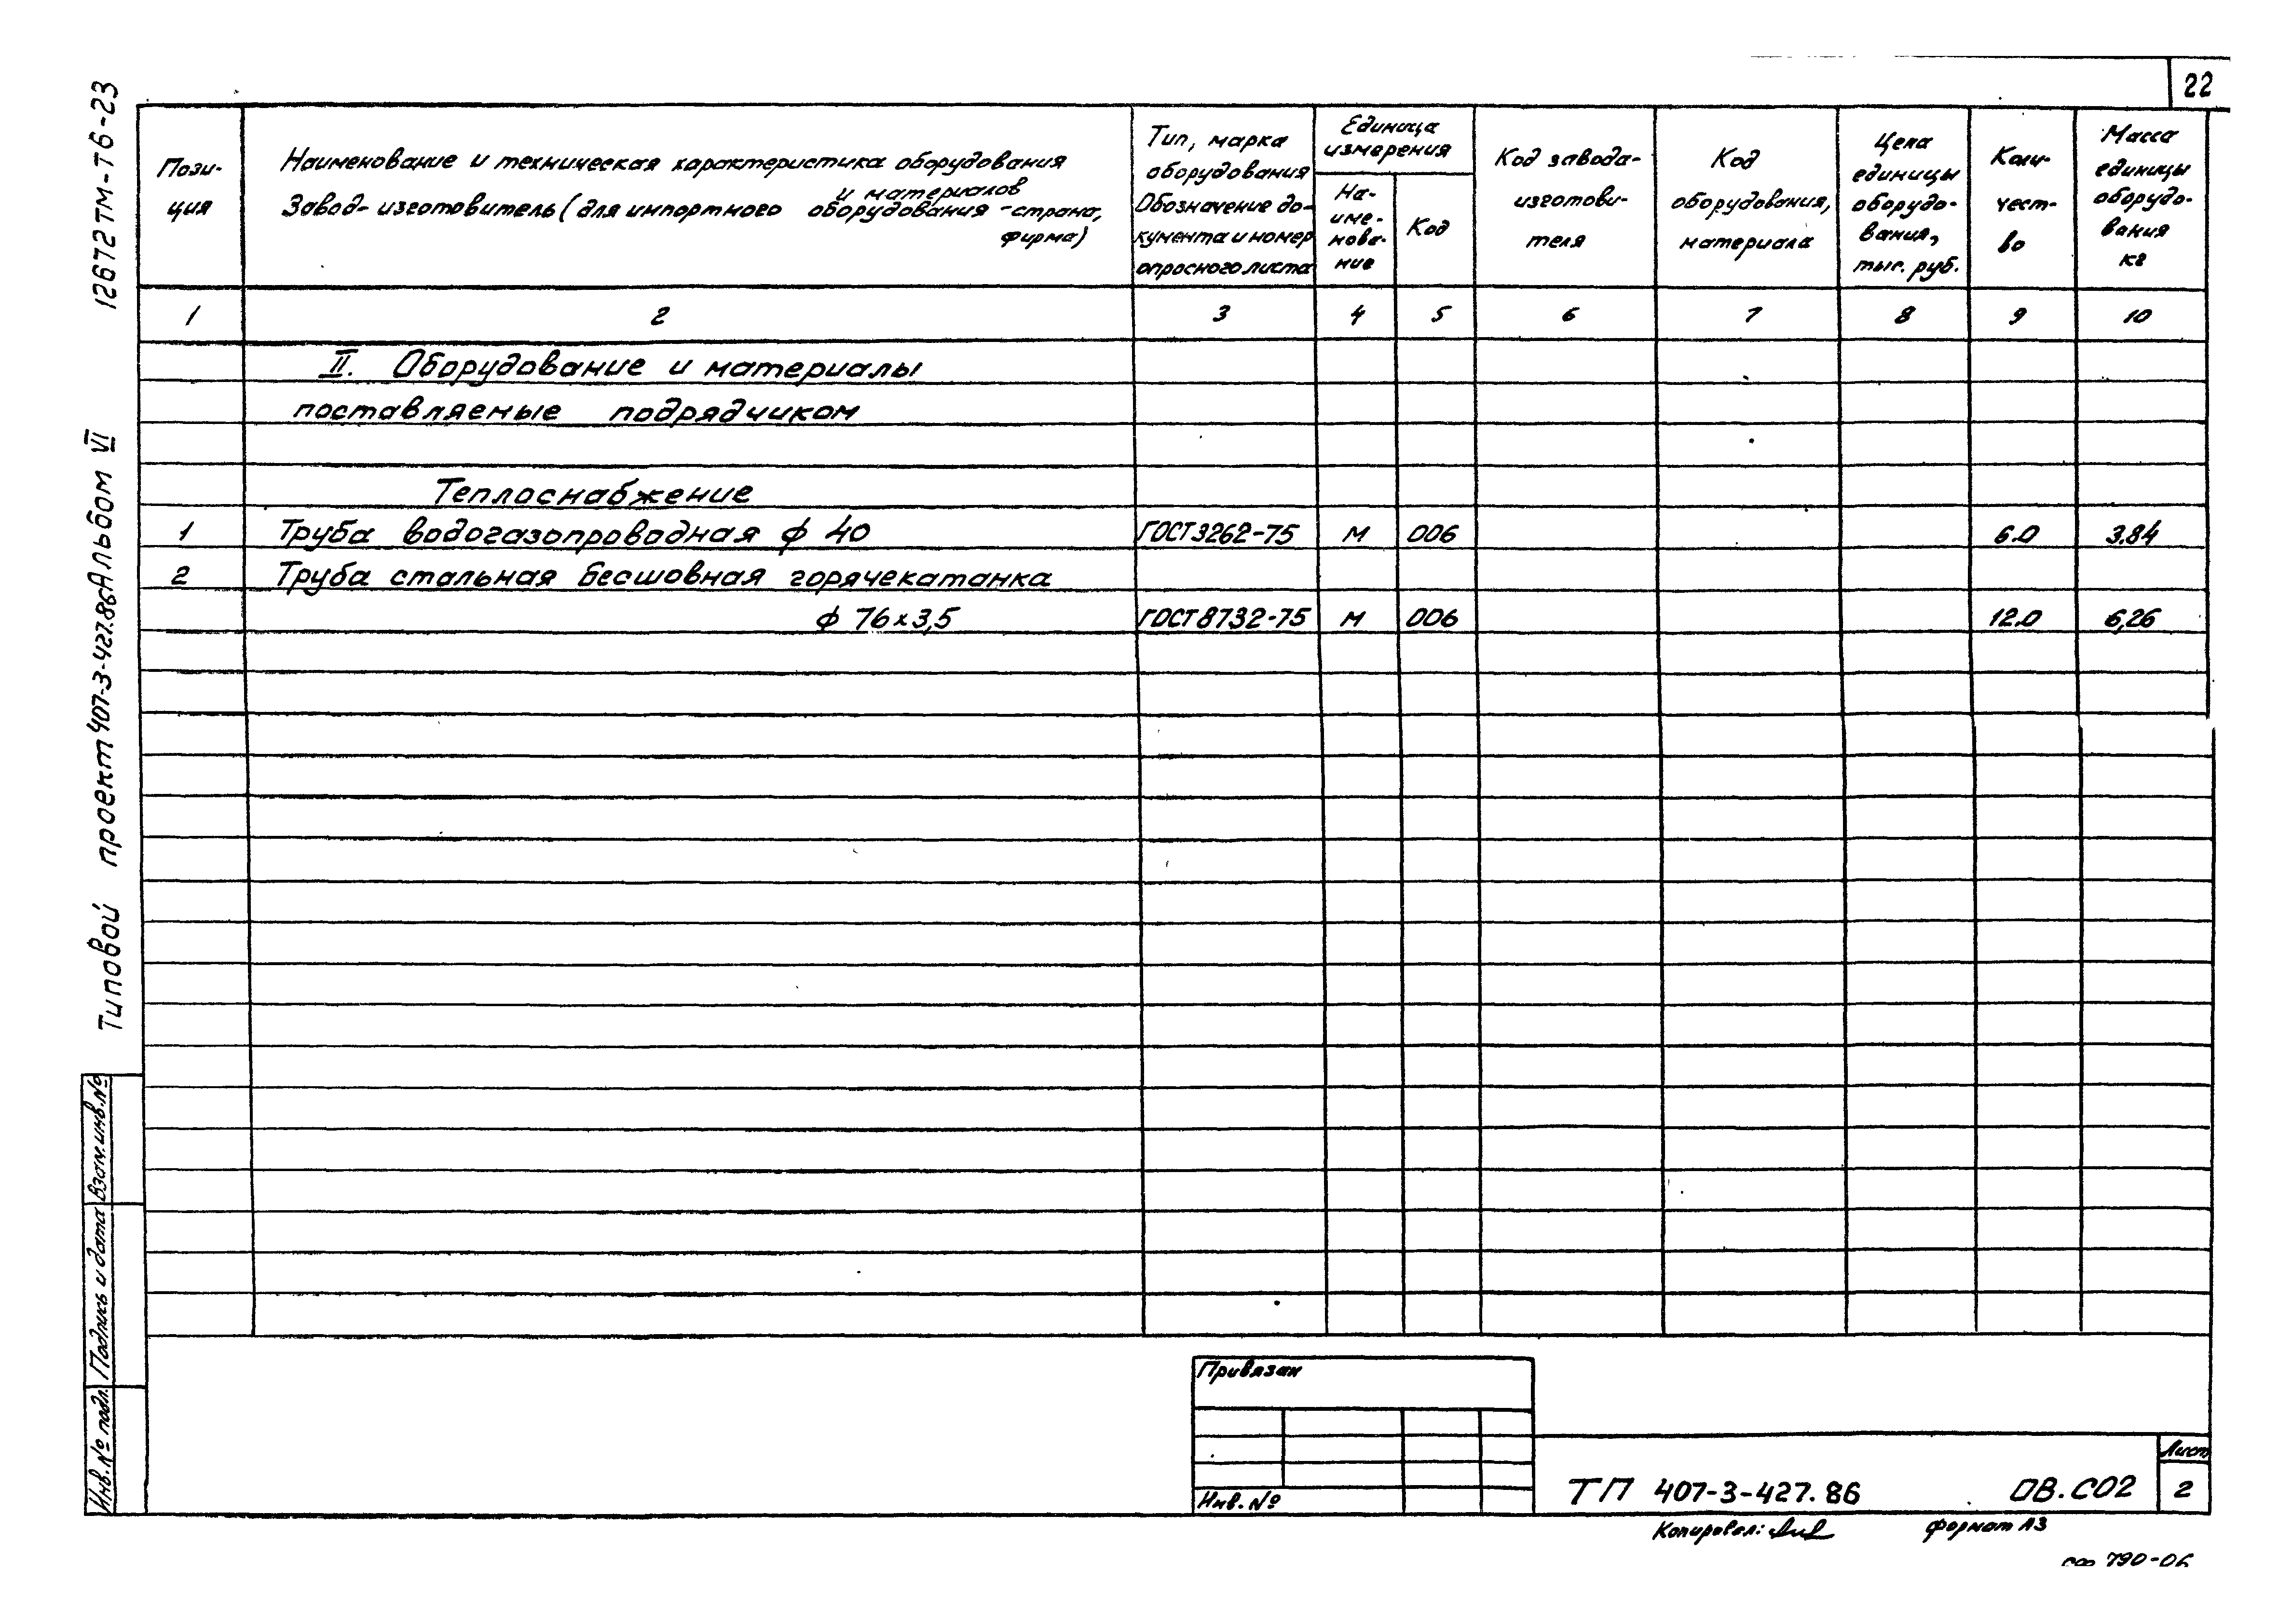 22
12672тм-т6-23
Типовой проект 407-3-427.86 Альбом VI
Пози-
ция
Наименование и техническая характеристика оборудования
и материалов
Завод-изготовитель (для импортного оборудования - страна,
фирма)
Тип, марка
оборудования
Обозначение до-
кумента и номер
опросного листа
Единица
измерения
На-
име-
нова-
ние
Код
Код завода-
изготови-
теля
Код
оборудования,
материала
Цена
единицы
оборудо-
вания,
тыс. руб.
Коли-
чест-
во
Масса
единицы
оборудо-
вания
кг
1 2 3 4 5 6 7 8 9 10
II. Оборудование и материалы
поставляемые подрядчиком
Теплоснабжение
1 Труба водогазопроводная ф 40 ГОСТ 3262-75 м 006 6.0 3.84
2 Труба стальная бесшовная горячекатанка
ф 76х3,5 ГОСТ 8732-75 м 006 12.0 6,26
Взам.инв.№
Подпись и дата
Инв.№ подл.
Привязан
Инв.№
ТП 407-3-427.86 ОВ.СО2
Лист
2
Копировал:
Формат А3
790-06